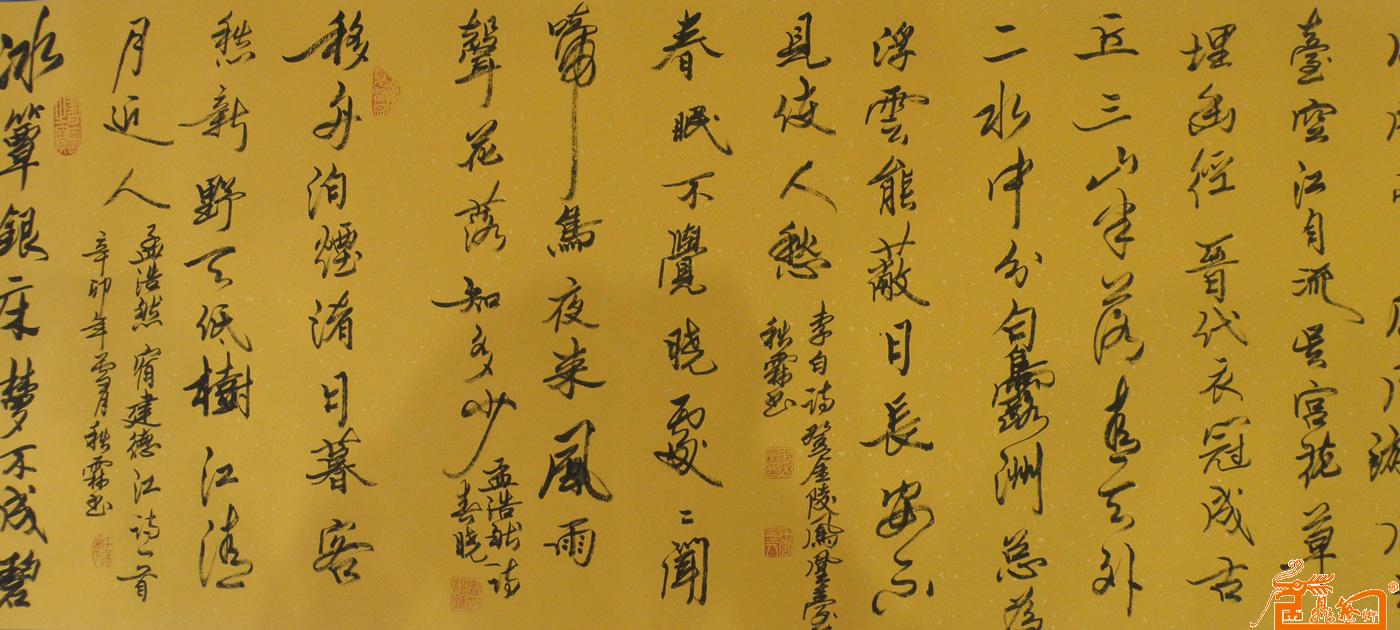 臺空江自流吳宮花草
埋幽徑晉代衣冠成古
丘三山半落青天外
二水中分白鷺洲總為
浮雲能蔽日長安不
見使人愁
李白詩登金陵鳳凰臺
秋霖書
春眠不覺曉處〻聞
啼鳥夜来風雨
聲花落知多少
孟浩然詩
春曉
移舟泊煙渚日暮客
愁新野天低樹江清
月近人
孟浩然宿建德江詩一首
辛卯年月秋霖書
冰簟銀床夢不成碧